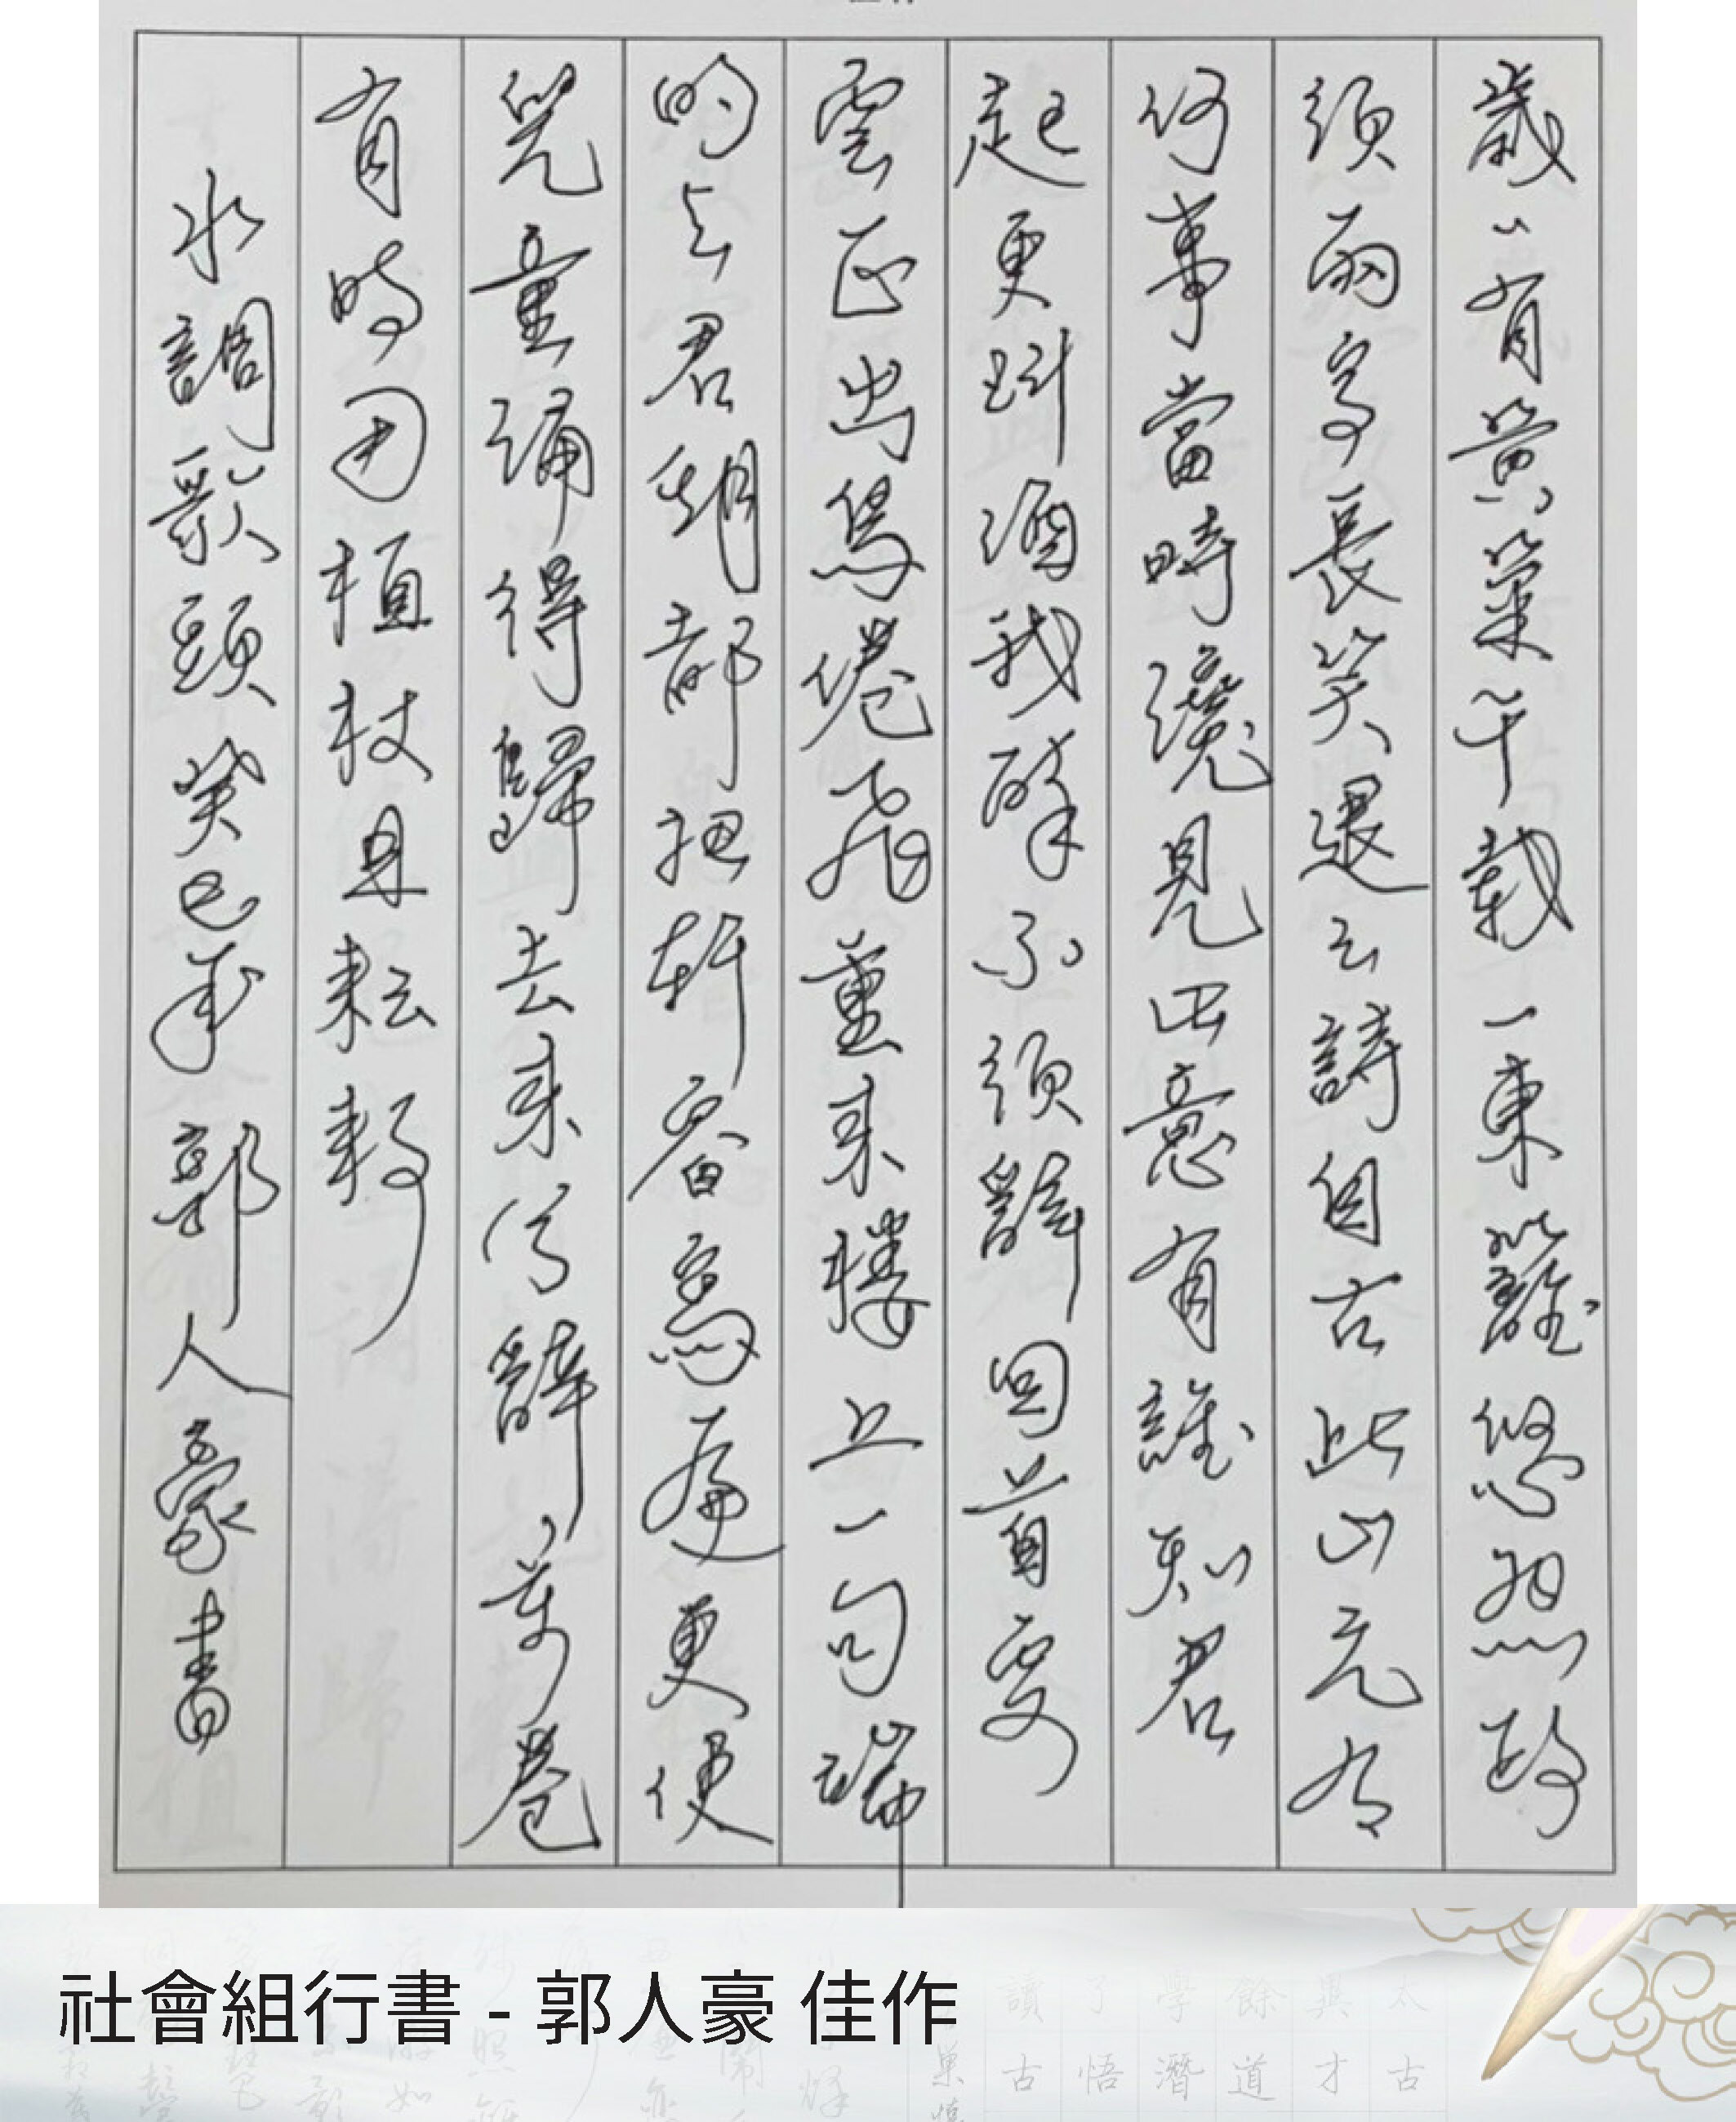 歲〻有黃菊千載一東籬悠然政
須兩字長笑退之詩自古此山元有
何事當時纔見此意有誰知君
起更斟酒我醉不須辭回首處
雲正出鳥倦飛重來樓上一句端
的與君期都把軒窗寫遍更使
兒童誦得歸去來兮辭萬卷
有時用植杖且耘耔
水調歌頭癸巳年郭人豪書
社會組行書 - 郭人豪 佳作